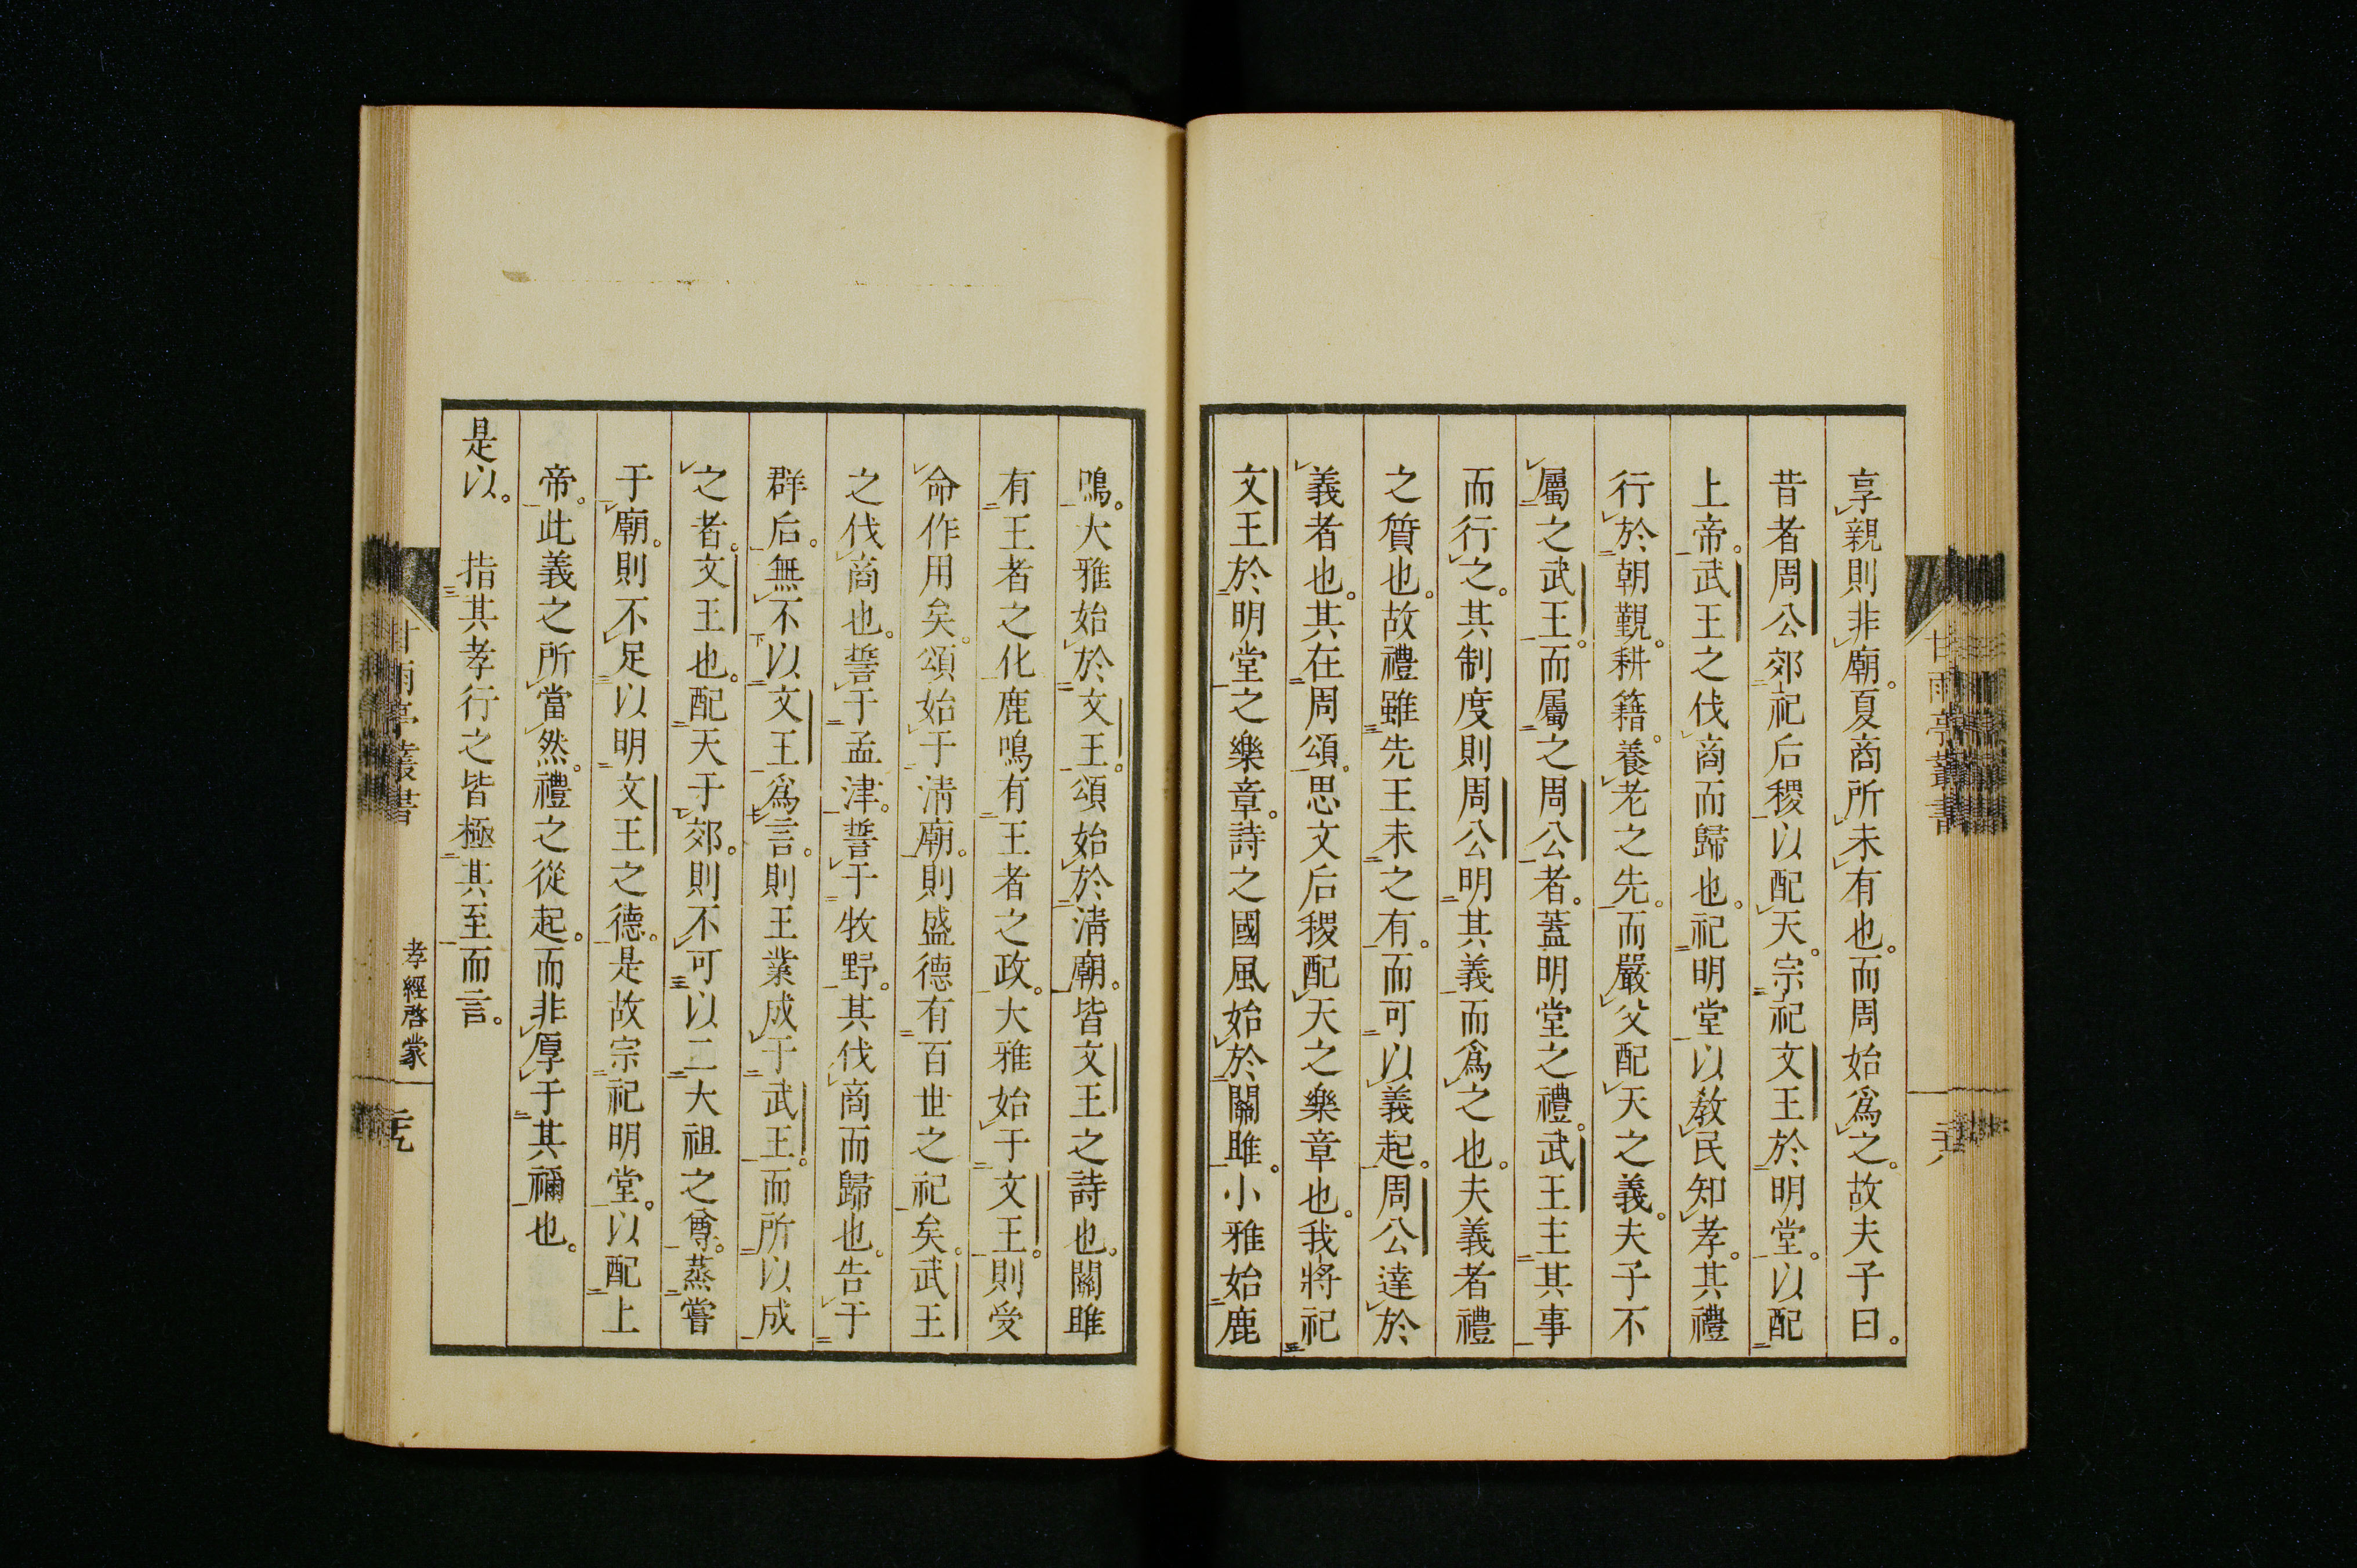 享親則非廟。夏商所未有也。而周始爲之。故夫子曰。
昔者周公郊祀后稷以配天。宗祀文王於明堂。以配
上帝。武王之伐商而歸也。祀明堂以教民知孝。其禮
行於朝覲。耕籍。養老之先。而嚴父配天之義。夫子不
屬之武王。而屬之周公者。蓋明堂之禮。武王主其事
而行之。其制度則周公明其義而爲之也。夫義者禮
之質也。故禮雖先王未之有。而可以義起。周公達於
義者也。其在周頌。思文后稷配天之樂章也。我將祀
文王於明堂之樂章。詩之國風始於關雎。小雅始鹿
鳴。大雅始於文王。頌始於淸廟。皆文王之詩也。關雎
有王者之化鹿鳴有王者之政。大雅始于文王。則受
命作用矣。頌始于淸廟。則盛德有百世之祀矣。武王
之伐商也。誓于孟津。誓于牧野。其伐商而歸也。告于
群后。無不以文王爲言。則王業成于武王。而所以成
之者。文王也。配天于郊。則不可以二大祖之尊。蒸嘗
于廟。則不足以明文王之德。是故宗祀明堂。以配上
帝。此義之所當然。禮之從起。而非厚于其禰也。
是以。 指其孝行之皆極其至而言。
甘雨亭叢書 孝經啓蒙
甘雨亭叢書